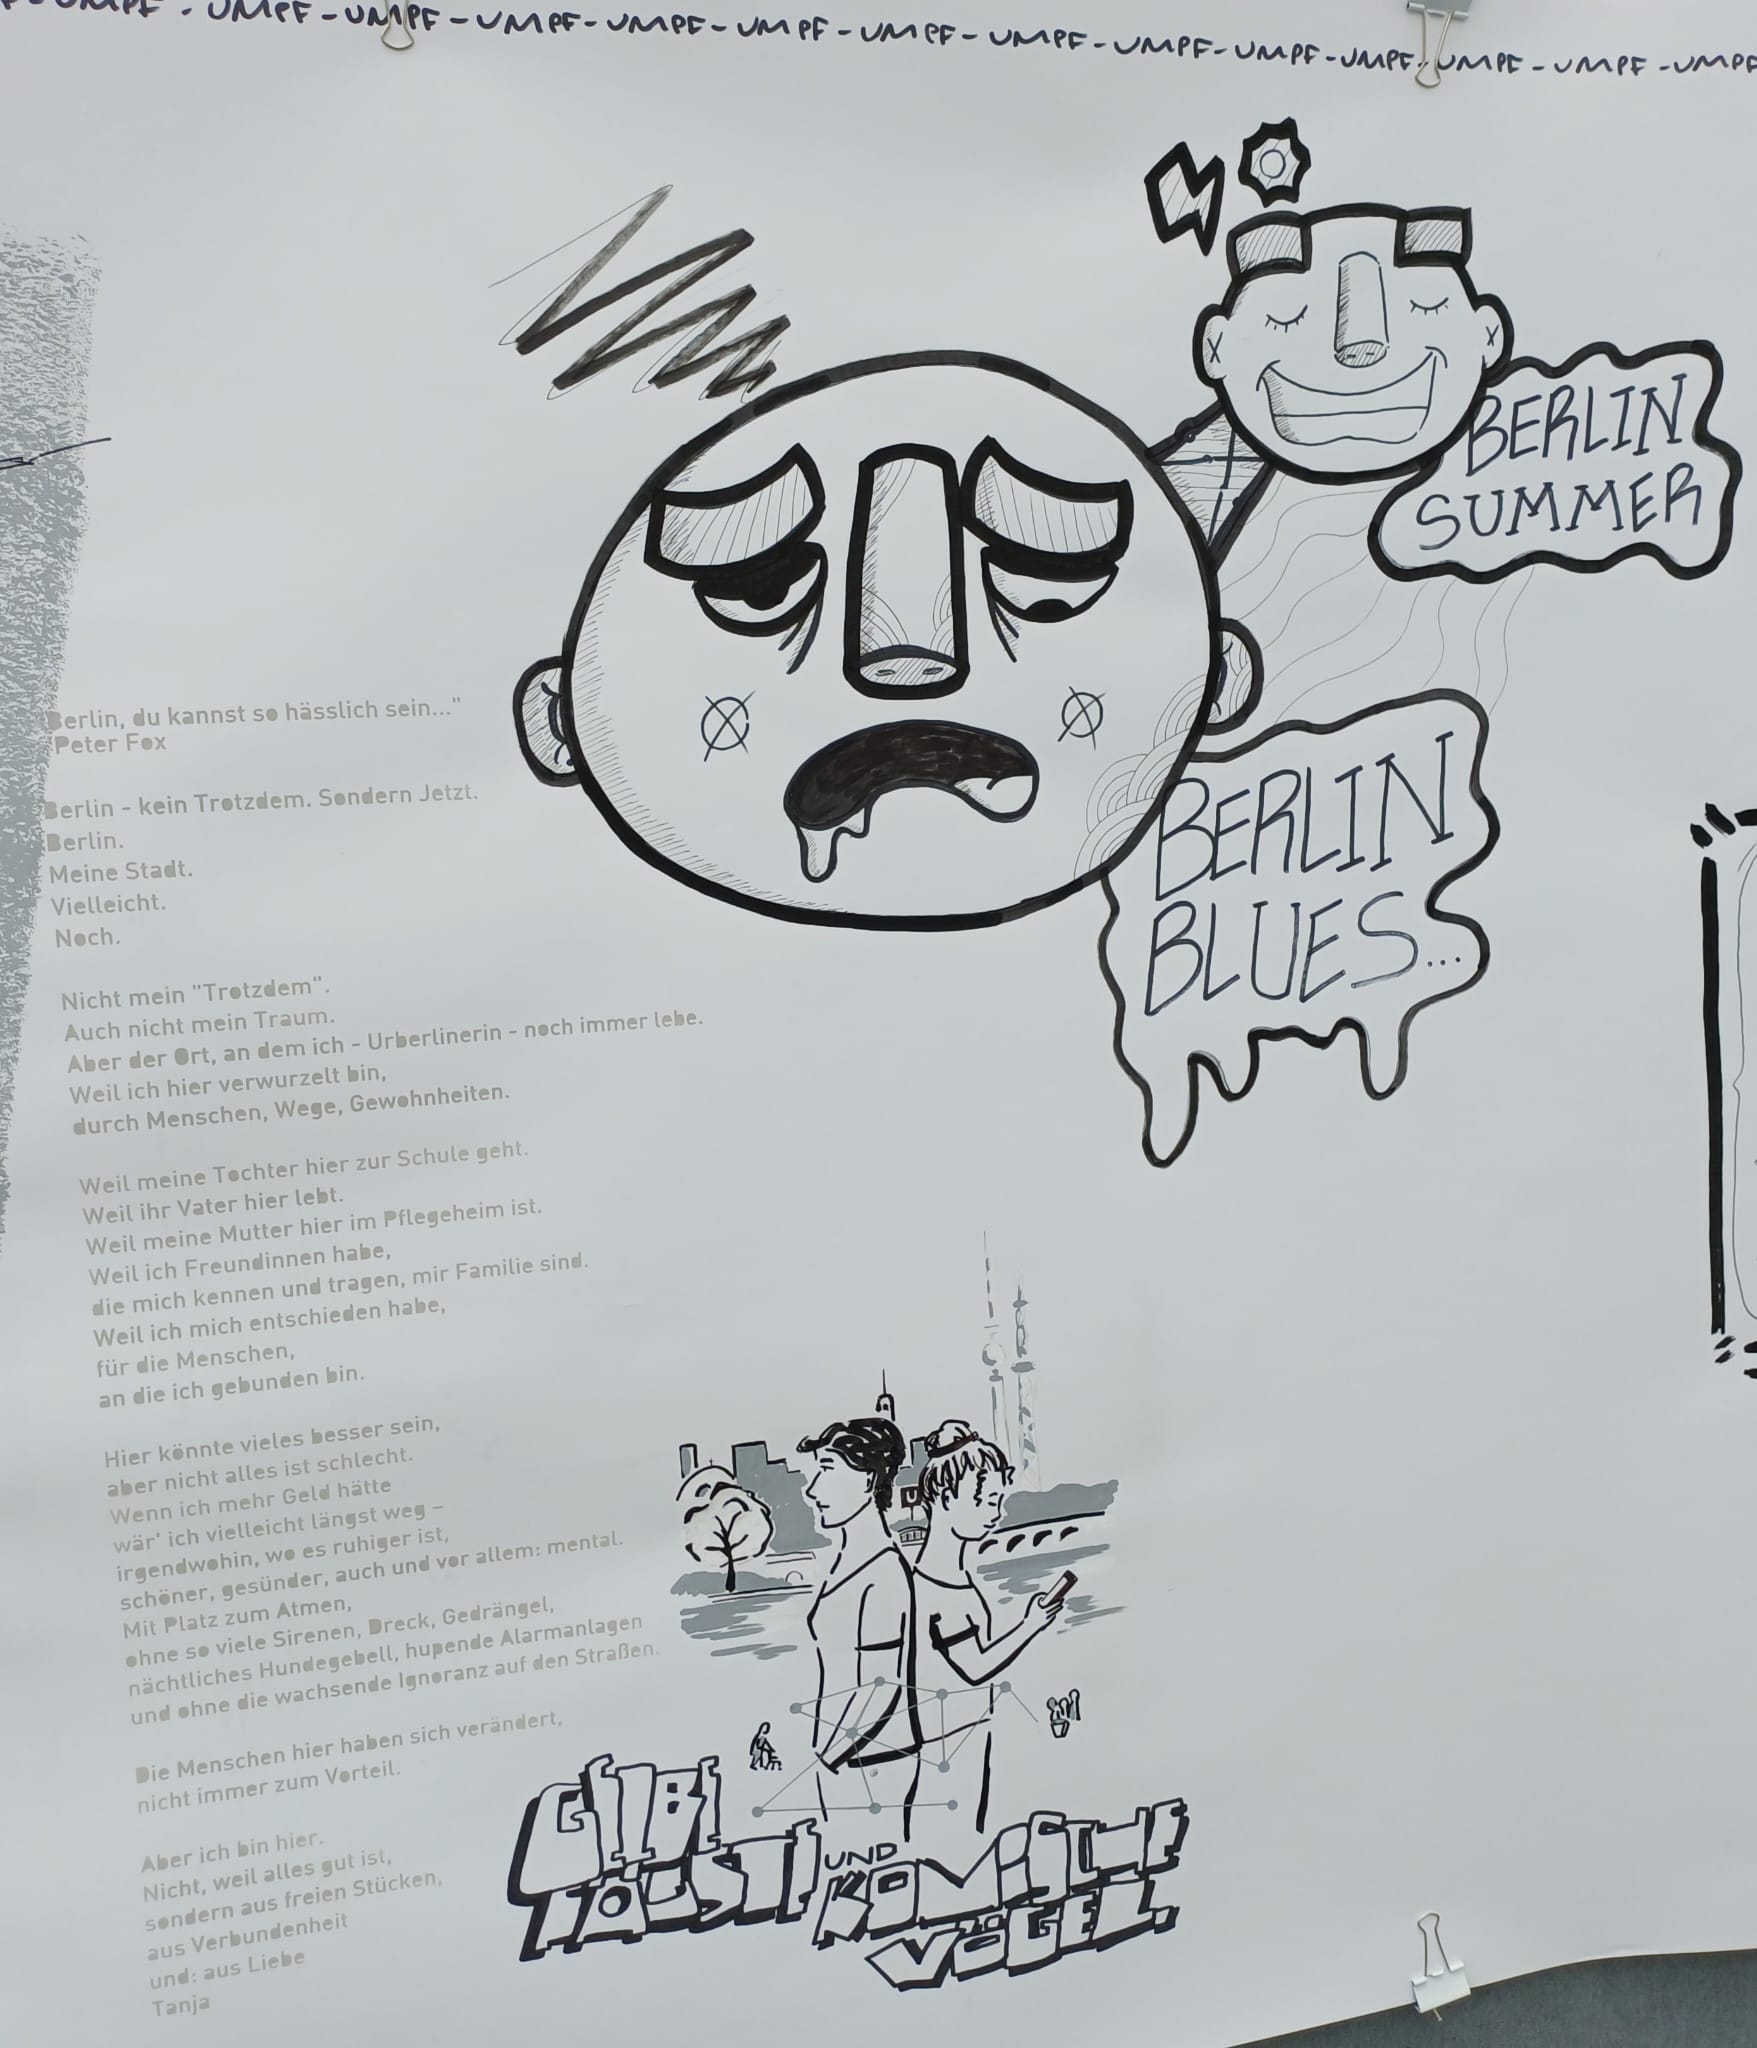 UMPF - UMPF - UMPF - UMPF - UMPF - UMPF - UMPF - UMPF - UMPF - UMPF - UMPF - UMPF - UMPF - UMPF
BERLIN
SUMMER
BERLIN
BLUES...
Berlin, du kannst so hässlich sein..."
Peter Fox
Berlin - kein Trotzdem. Sondern Jetzt.
Berlin.
Meine Stadt.
Vielleicht.
Noch.
Nicht mein "Trotzdem".
Auch nicht mein Traum.
Aber der Ort, an dem ich - Urberlinerin - noch immer lebe.
Weil ich hier verwurzelt bin,
durch Menschen, Wege, Gewohnheiten.
Weil meine Tochter hier zur Schule geht.
Weil ihr Vater hier lebt.
Weil meine Mutter hier im Pflegeheim ist.
Weil ich Freundinnen habe,
die mich kennen und tragen, mir Familie sind.
Weil ich mich entschieden habe,
für die Menschen,
an die ich gebunden bin.
Hier könnte vieles besser sein,
aber nicht alles ist schlecht.
Wenn ich mehr Geld hätte
wär' ich vielleicht längst weg –
irgendwohin, wo es ruhiger ist,
schöner, gesünder, auch und vor allem: mental.
Mit Platz zum Atmen,
ohne so viele Sirenen, Dreck, Gedrängel,
nächtliches Hundegebell, hupende Alarmanlagen
und ohne die wachsende Ignoranz auf den Straßen.
Die Menschen hier haben sich verändert,
nicht immer zum Vorteil.
Aber ich bin hier.
Nicht, weil alles gut ist,
sondern aus freien Stücken,
aus Verbundenheit
und: aus Liebe
Tanja
U
UND KOMISCHE
VÖGEL.